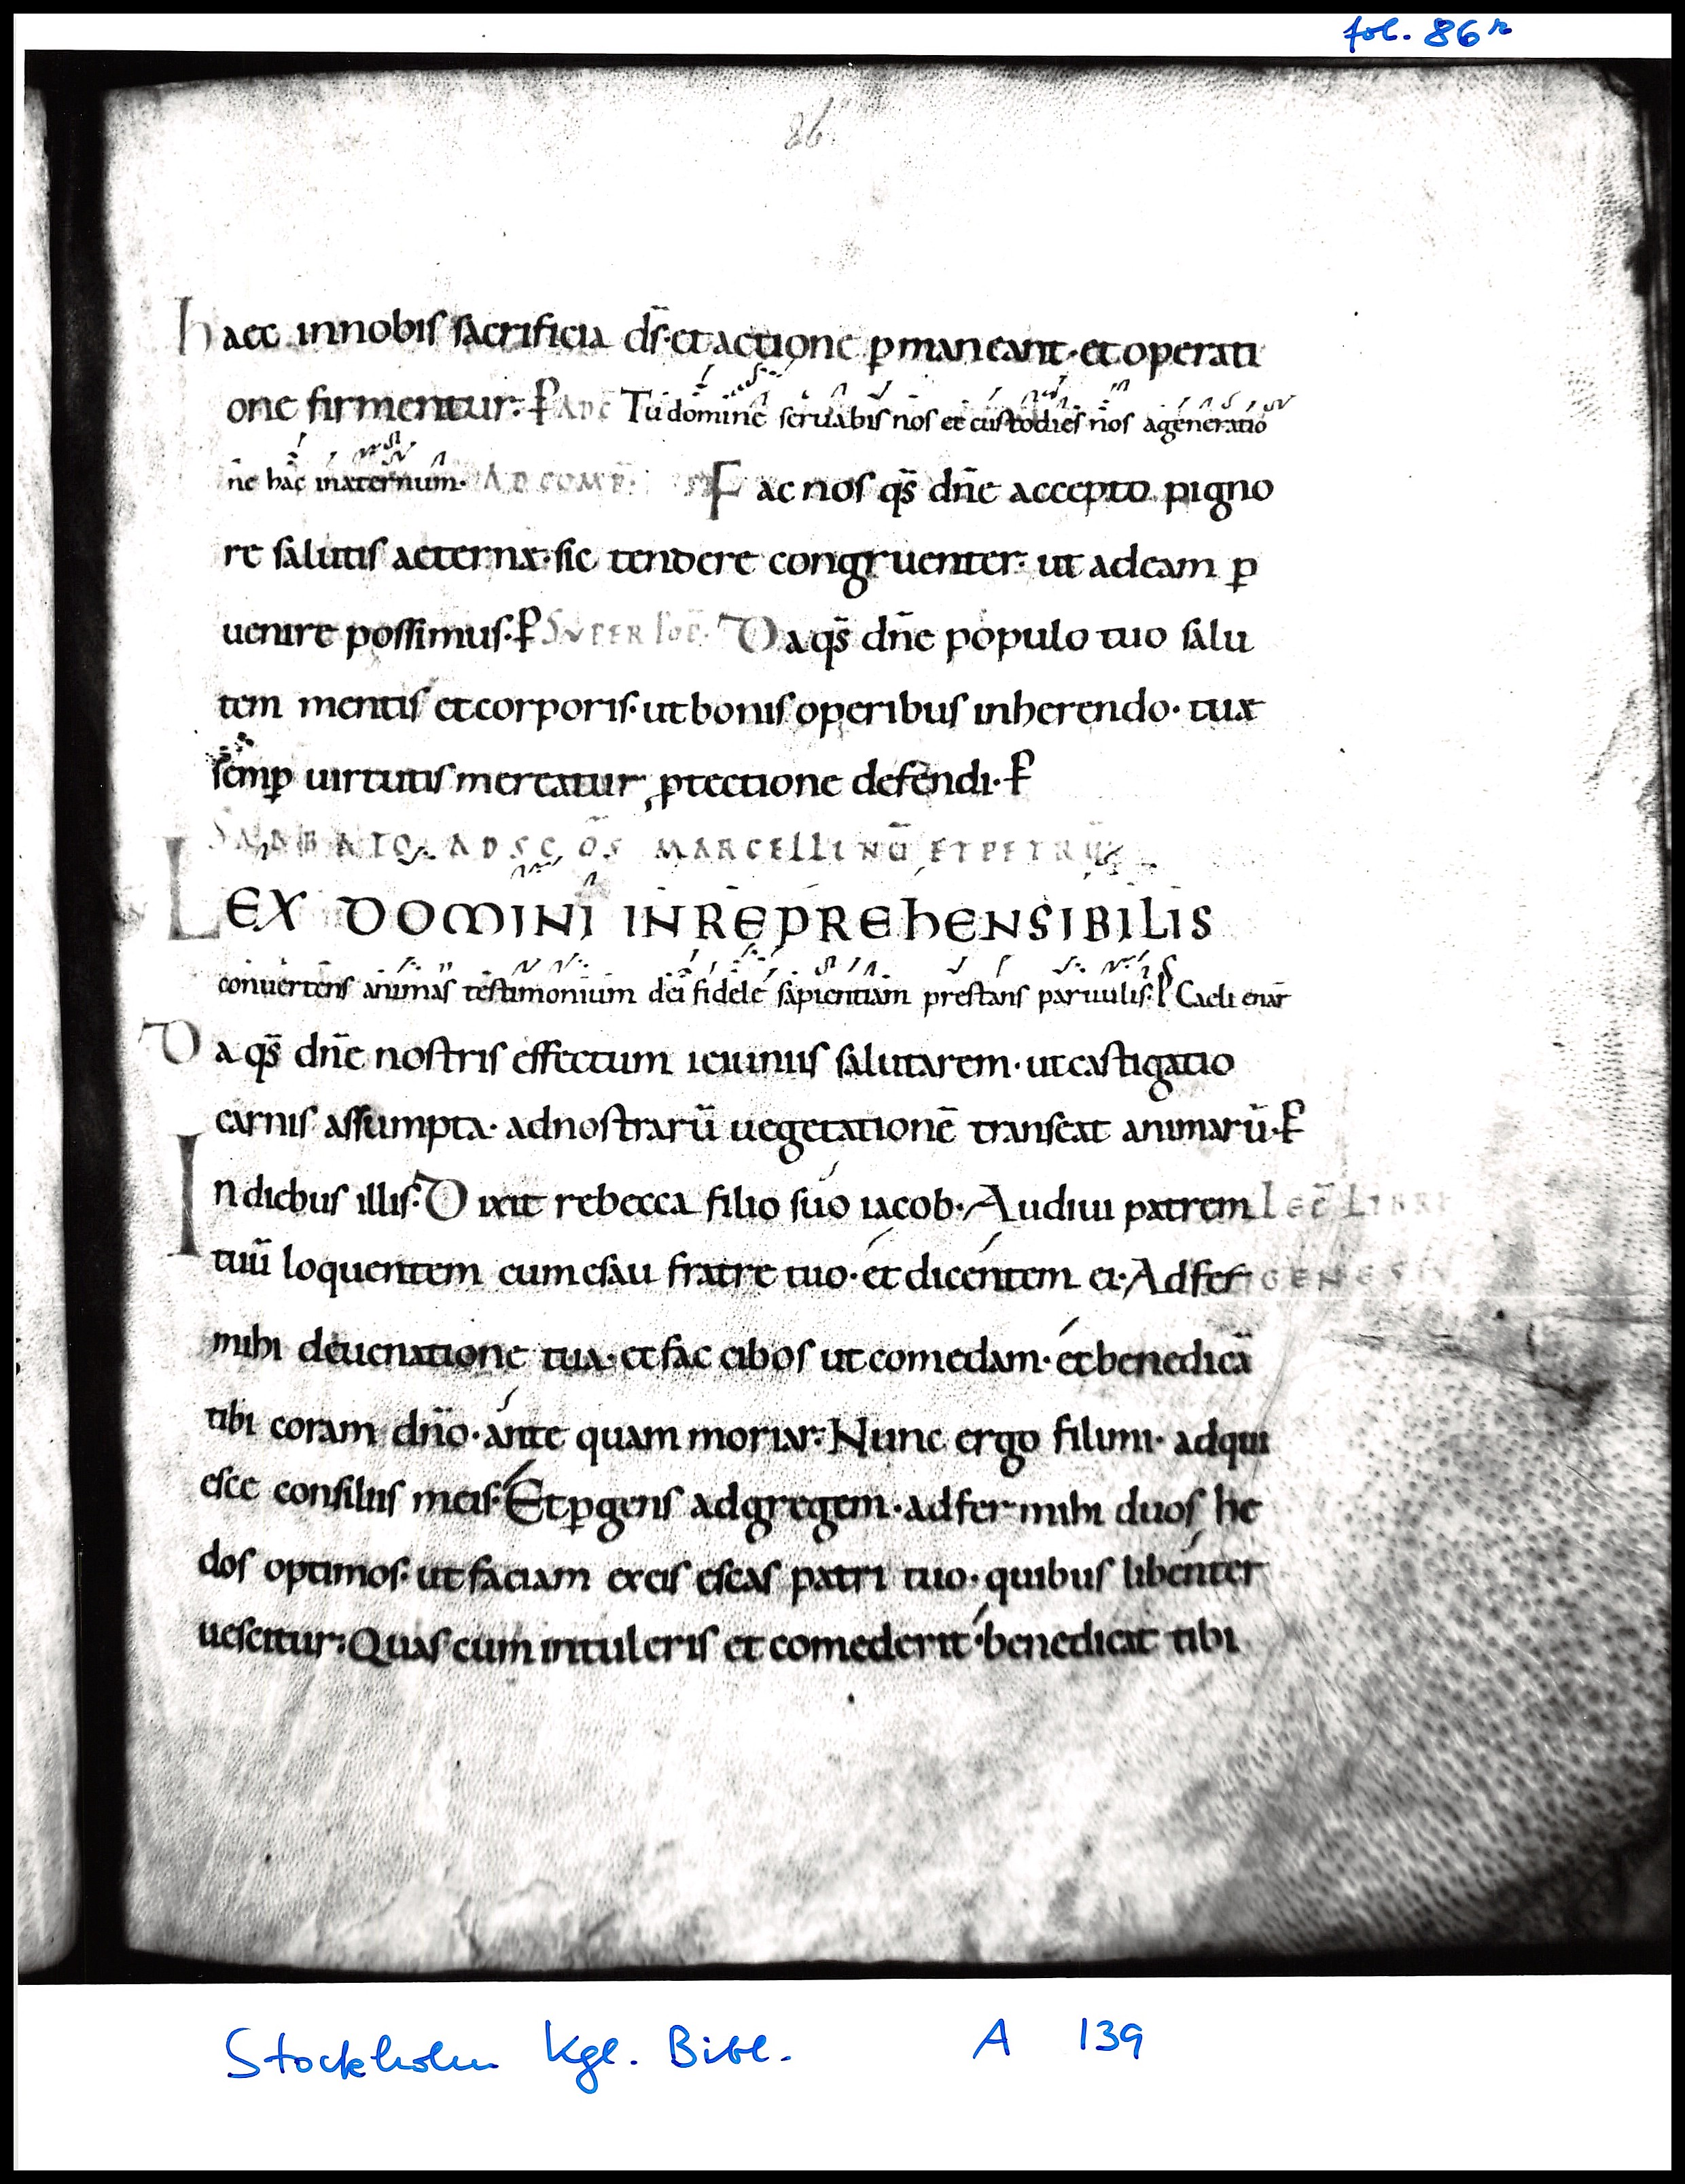 fol. 86r
86.
haec innobis sacrificia dr̄·et actione ꝑmaneant·et operati
one firmentur:· ꝑ Tu domine seruabis nos et custodies nos ageneratio
ne hac inaeternum· AD COMP̄· Fac nos qs̄ dn̄e accepto pigno
re salutis aeternae·sic tendere congruenter· ut adeam ꝑ
uenire possimus·ꝑ SUPER Da qs̄ dn̄e populo tuo salu
tem mentis et corporis·ut bonis operibus inherendo· tuae
semꝑ uirtutis mereatur ꝓtectione defendi·ꝑ
SABBATO· AD SC̄OS MARCELLINŪ ET PETRŪ
LEX DOMINI INREPREhENSIBILIS
conuertens animas testimonium dei fidele sapientiam prestans paruulis: Caeli enar̄
Da qs̄ dn̄e nostris effectum ieiuniis salutarem· ut castigatio
carnis assumpta· adnostrarū uegetationē transeat animarū·ꝑ
Indiebus illis· Dixit rebecca filio suo iacob· Audiui patrem Lec̄ LIBRI
tuū loquentem cum esau fratre tuo· et dicentem ei· Adfer GENESIS
mihi deuenatione tua· et fac cibos ut comedam· et benedicā
tibi coram dn̄o· ante quam moriar· Nunc ergo fili mi· adqui
esce consiliis meis· Et ꝑgens adgregem· adfer mihi duos he
dos optimos· ut faciam ex eis escas patri tuo· quibus libenter
uescitur: Quas cum intuleris et comederit· benedicat tibi
Stockholm Kgl. Bibl. A 139